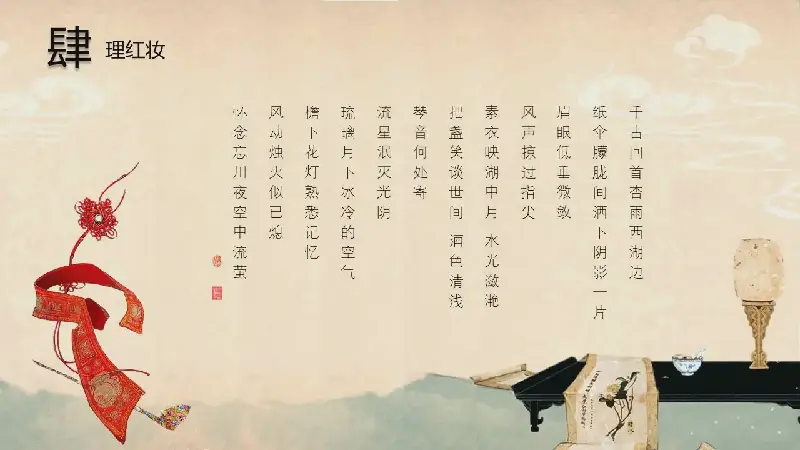 肆
理红妆
千古回首杏雨西湖边
纸伞朦胧间洒下阴影一片
眉眼低垂微敛
风声掠过指尖
素衣映湖中月 水光潋滟
把盏笑谈世间 酒色清浅
琴音何处寄
流星泯灭光阴
琉璃月下冰冷的空气
檐下花灯熟悉记忆
风动烛火似已熄
怀念忘川夜空中流萤